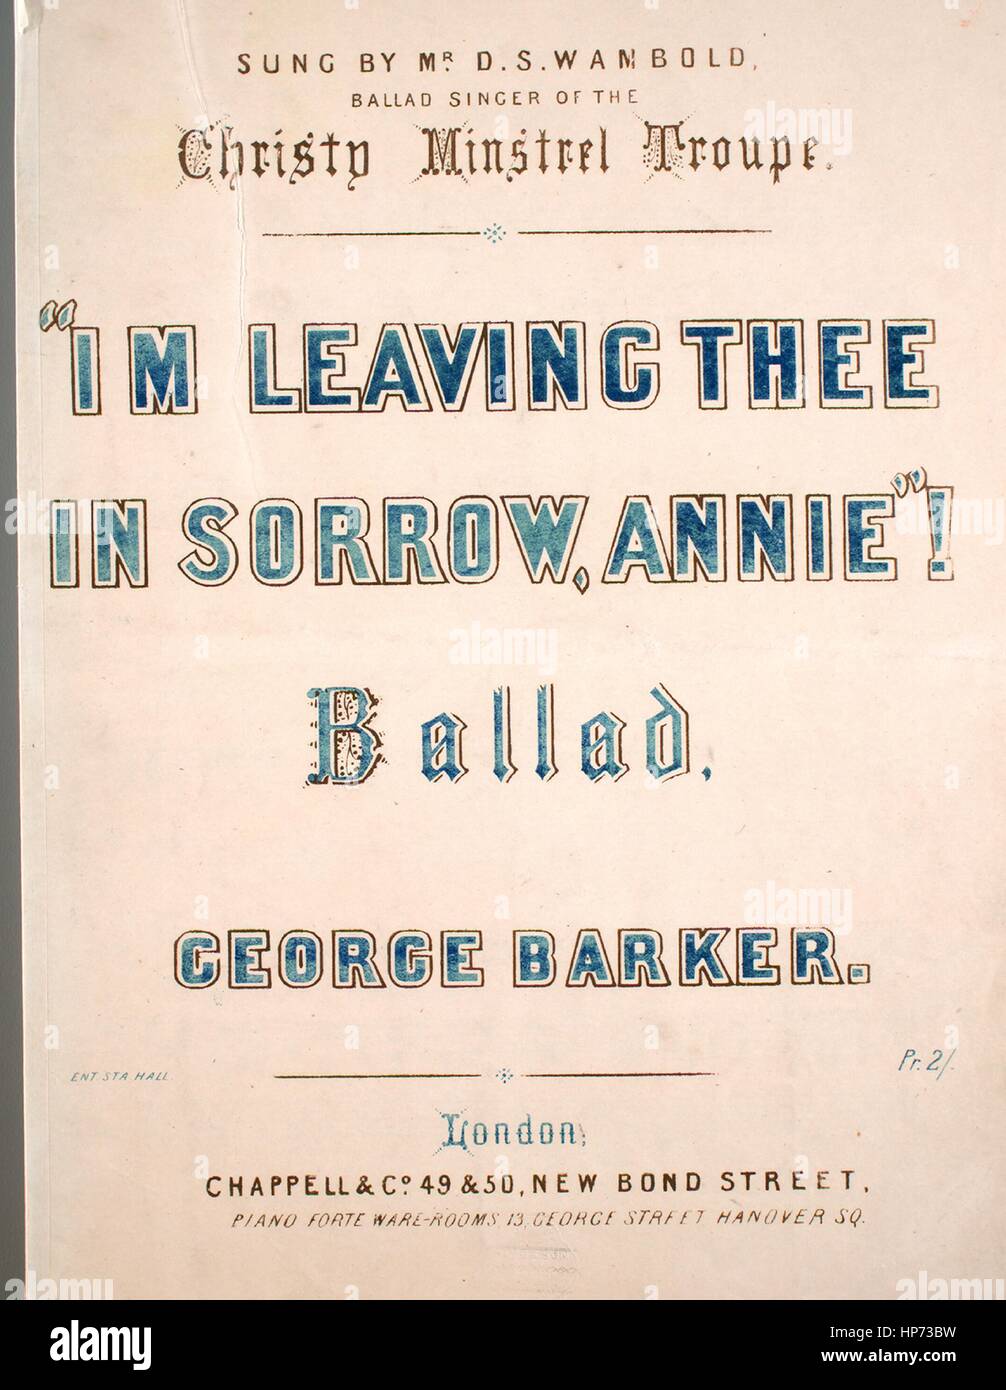 SUNG BY MR. D. S. WAMBOLD,
BALLAD SINGER OF THE
Christy Minstrel Troupe.
"I M LEAVING THEE
IN SORROW, ANNIE"!
Ballad.
GEORGE BARKER.
ENT. STA. HALL.
Pr. 2/.
London;
CHAPPELL & Co. 49 & 50, NEW BOND STREET,
PIANO FORTE WARE-ROOMS, 13, GEORGE STREET HANOVER SQ.
alamy stock photo
alamy
HP73BW
www.alamy.com